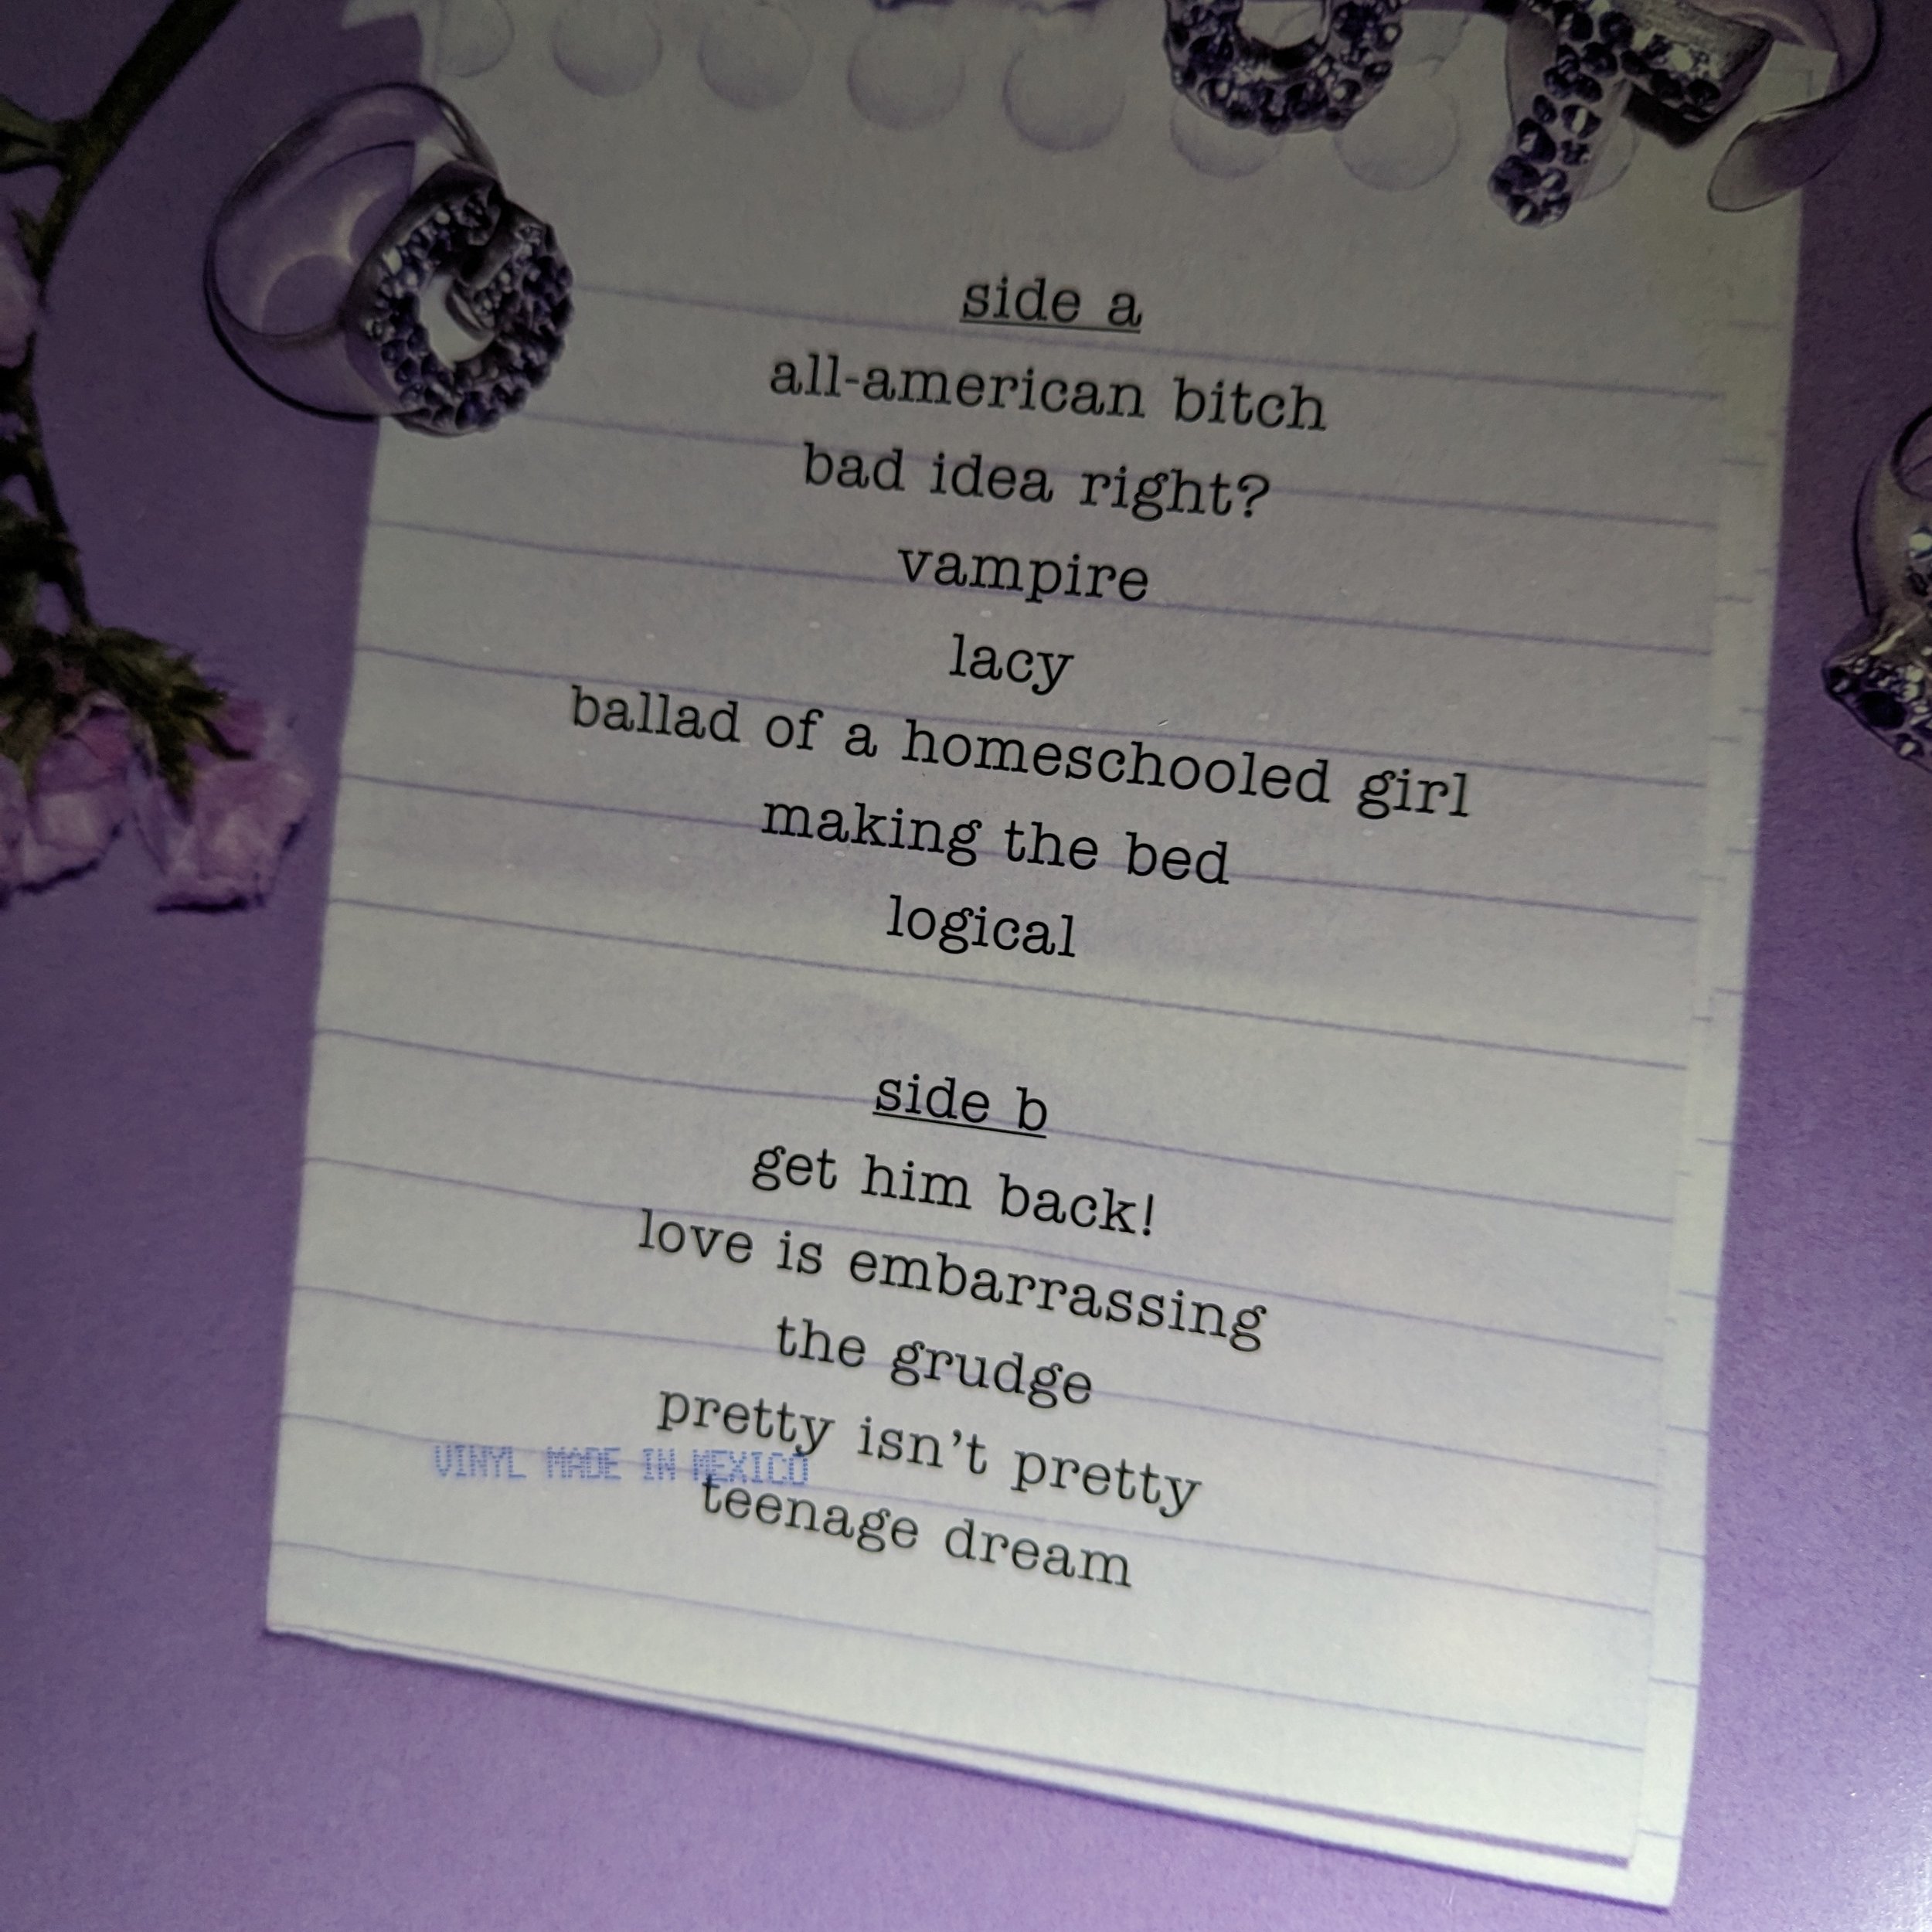 side a
all-american bitch
bad idea right?
vampire
lacy
ballad of a homeschooled girl
making the bed
logical
side b
get him back!
love is embarrassing
the grudge
pretty isn’t pretty
VINYL MADE IN MEXICO
teenage dream